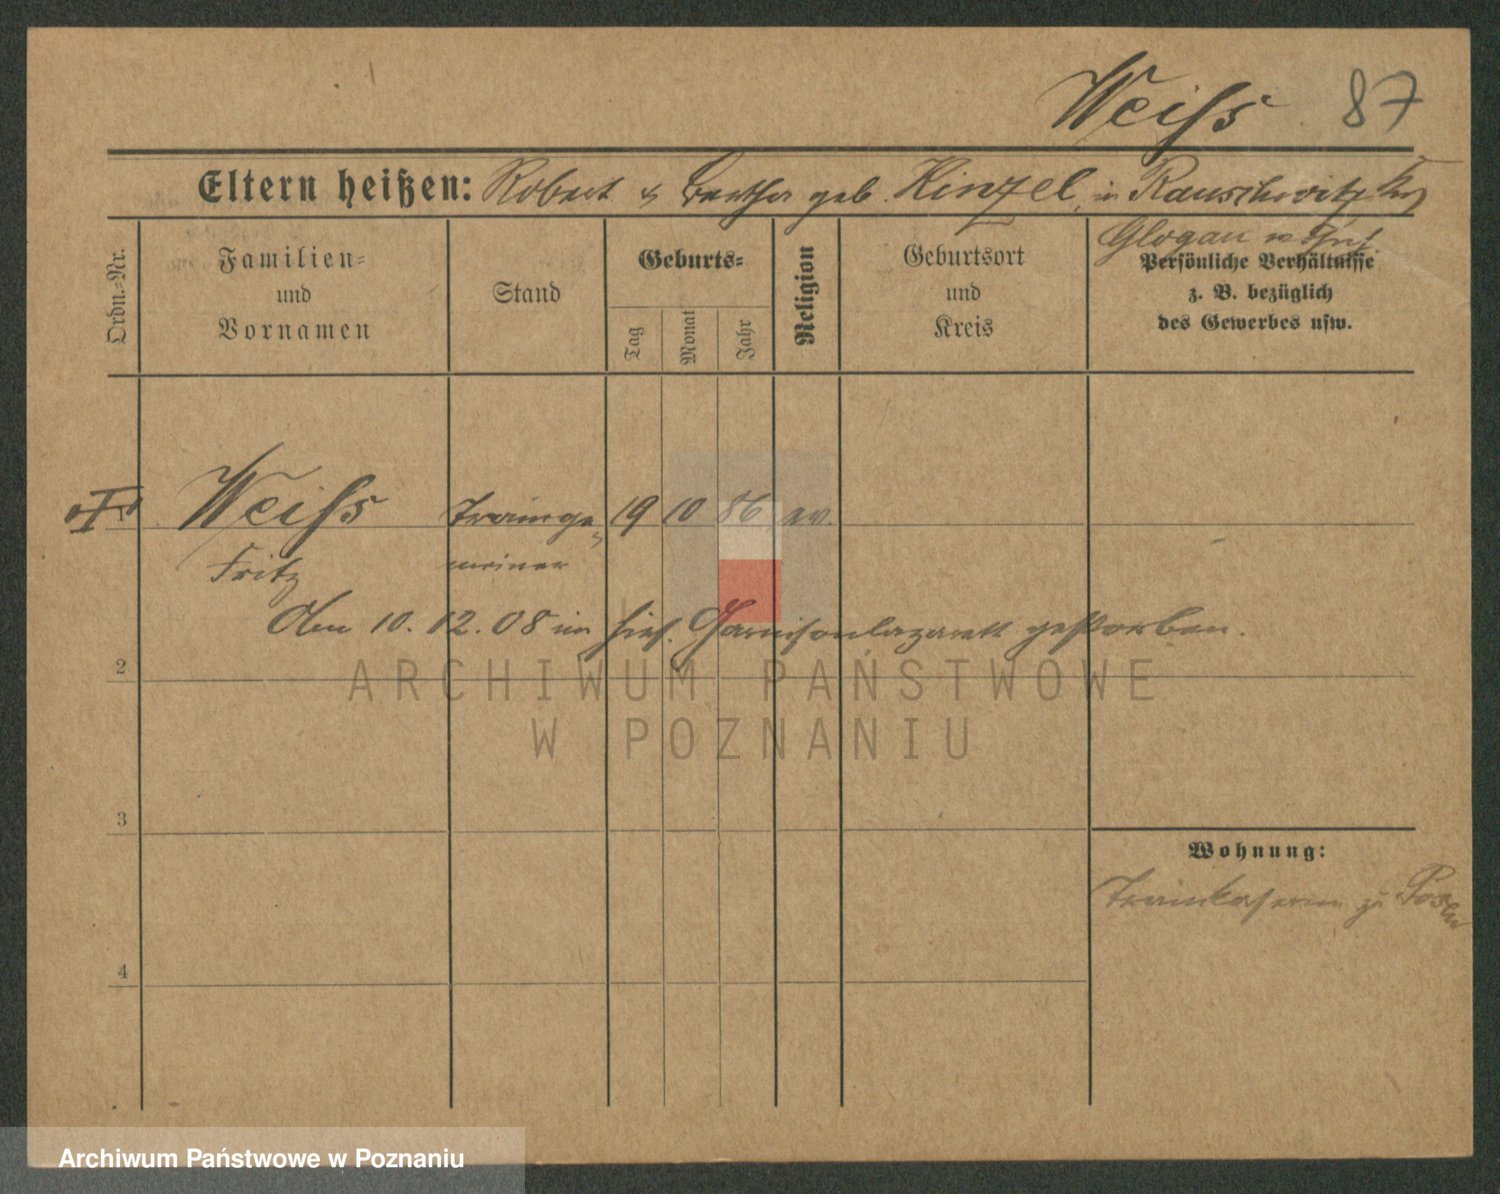 Weiss 87
Eltern heißen: Robert & Bertha geb. Hinzel, in Rauschwitz Krs
Glogau wohnh.
Ordn.-Nr.
Familien-
und
Vornamen
Stand
Geburts-
Tag
Monat
Jahr
Religion
Geburtsort
und
Kreis
Persönliche Verhältnisse
z. B. bezüglich
des Gewerbes usw.
1 Weiss Trainge- 19 10 86 ev.
Fritz meiner
Am 10. 12. 08 im hies. Garnisonlazarett gestorben.
2
ARCHIWUM PAŃSTWOWE
W POZNANIU
3
Wohnung:
Trainkaserne zu Posen
4
Archiwum Państwowe w Poznaniu